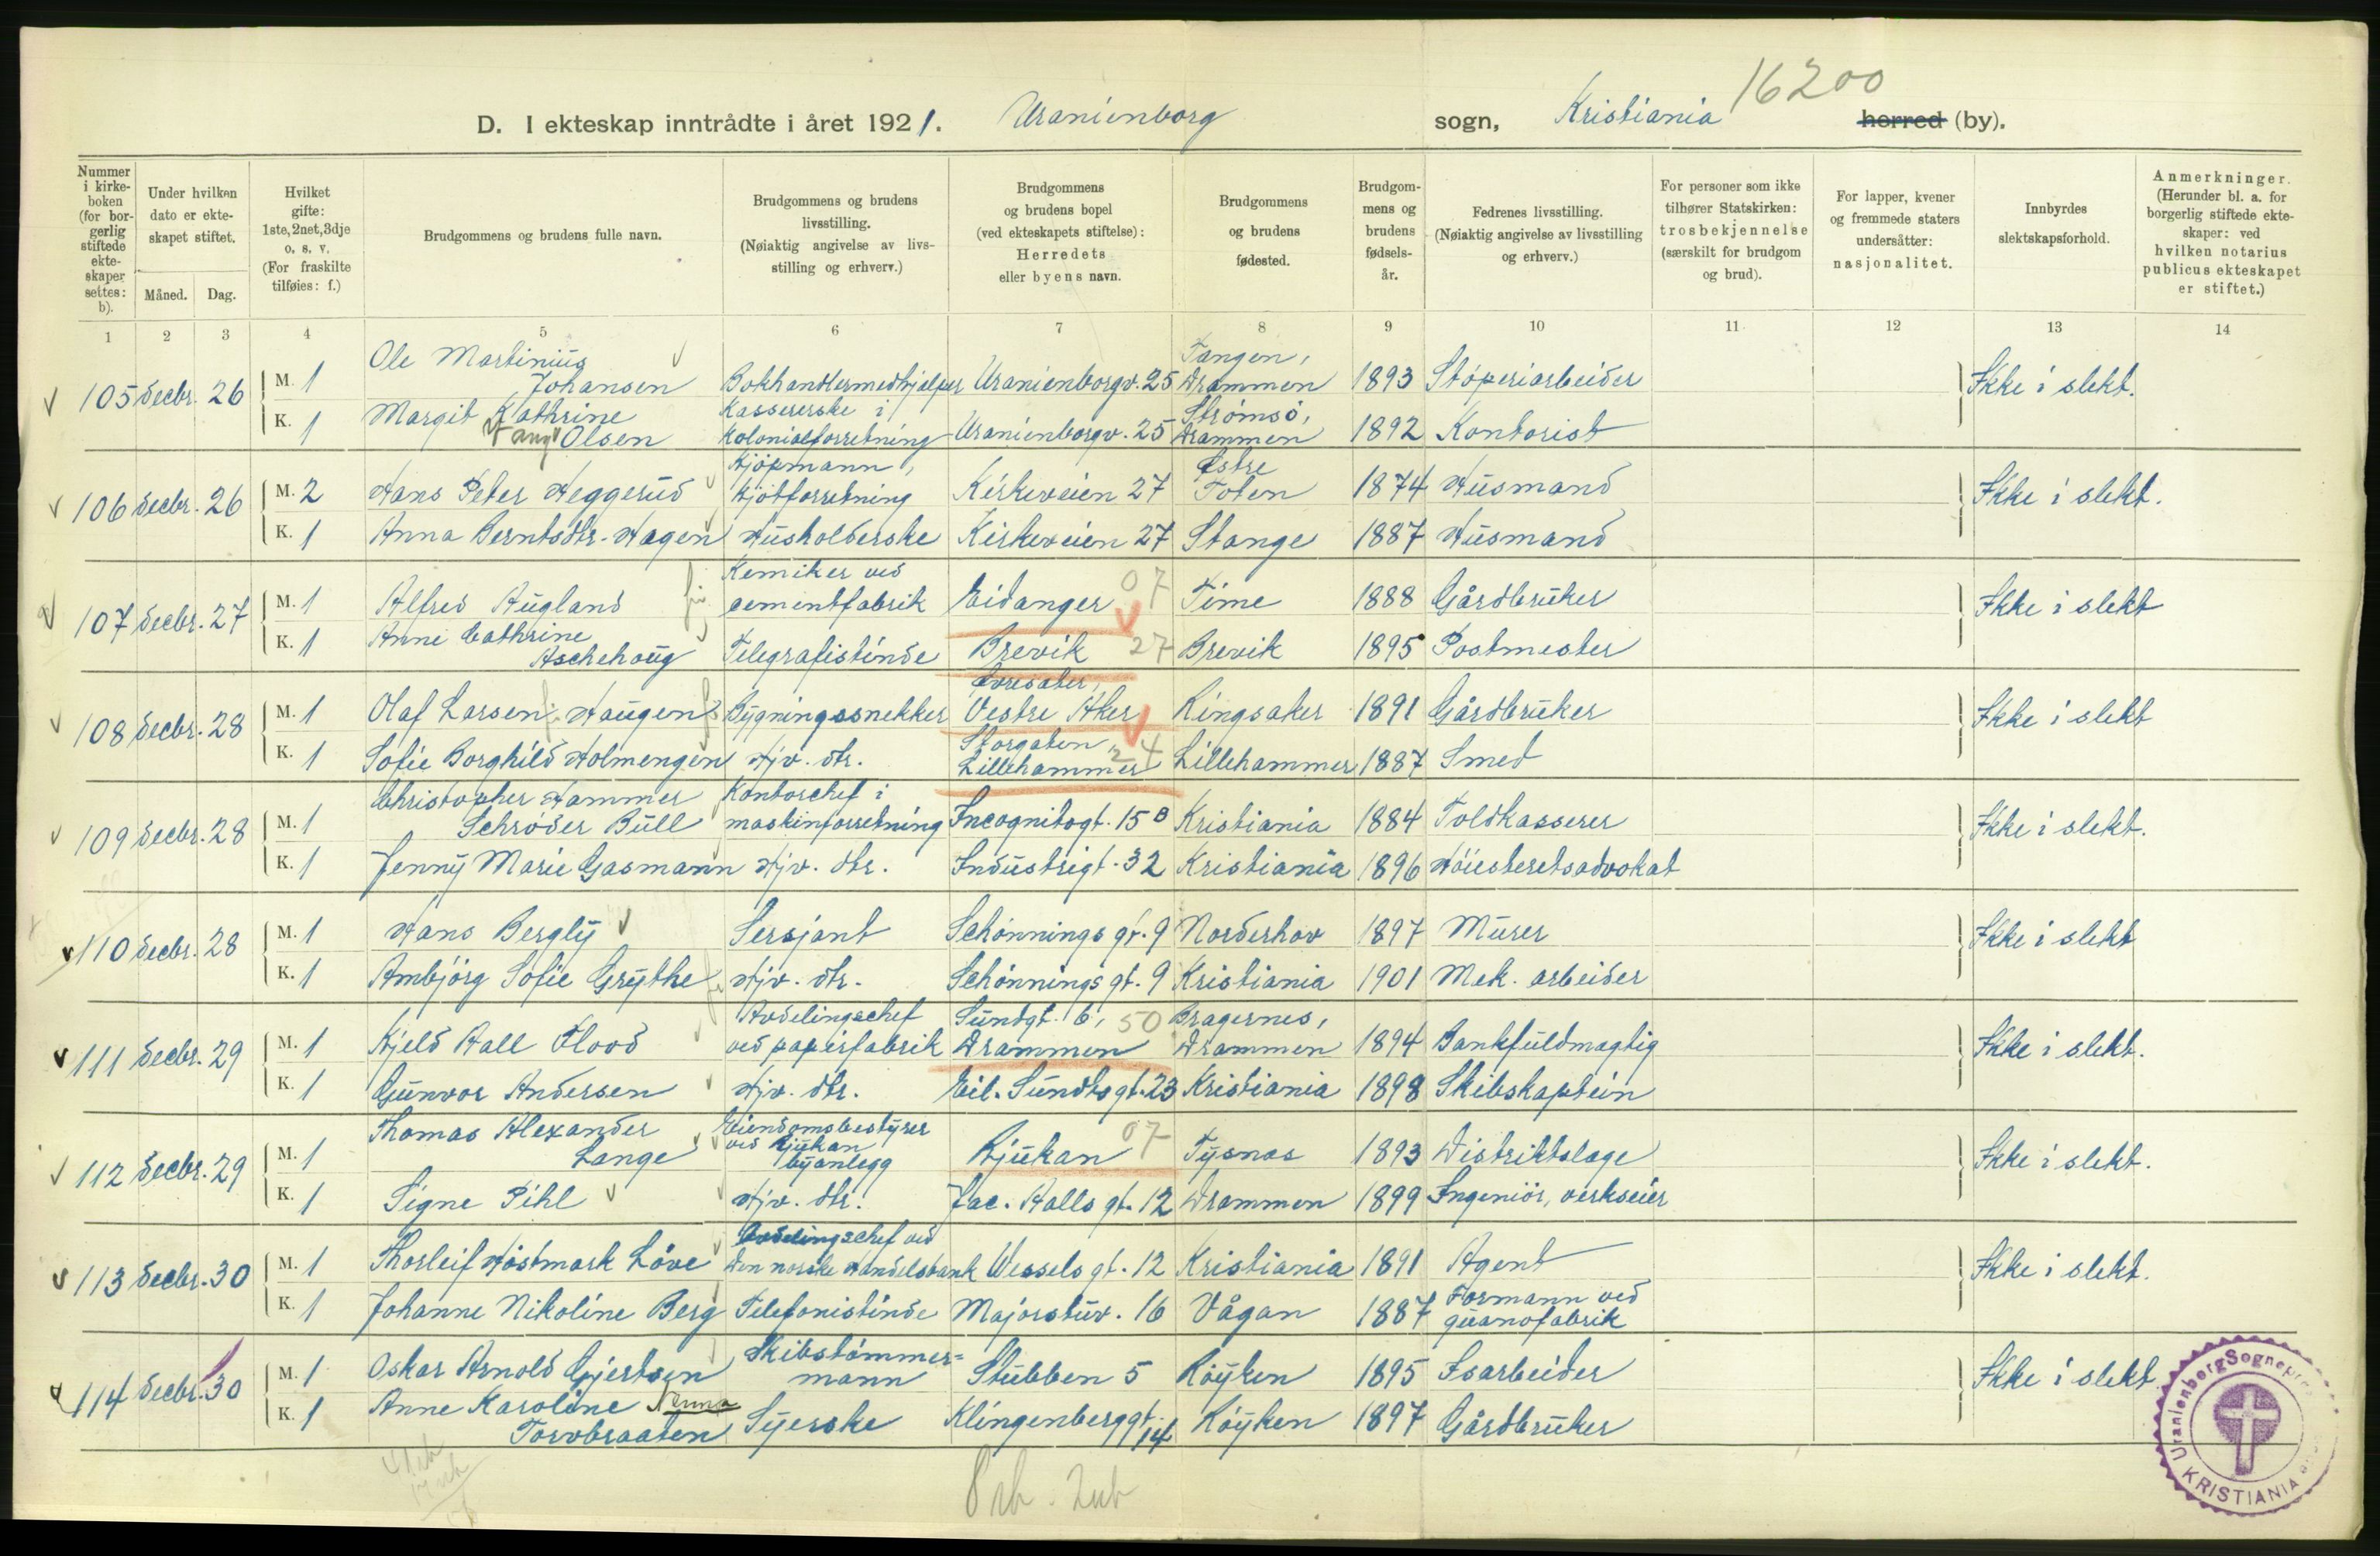 16200
D. I ekteskap inntrådte i året 1921. Uranienborg sogn, Kristiania herred (by).
Nummer i kirkeboken (for borgerlig stiftede ekteskaper settes: b).
Under hvilken dato er ekteskapet stiftet.
Måned. Dag.
Hvilket gifte: 1ste, 2net, 3dje o. s. v. (For fraskilte tilføies: f.)
Brudgommens og brudens fulle navn.
Brudgommens og brudens livsstilling. (Nøiaktig angivelse av livsstilling og erhverv.)
Brudgommens og brudens bopel (ved ekteskapets stiftelse): Herredets eller byens navn.
Brudgommens og brudens fødested.
Brudgommens og brudens fødselsår.
Fedrenes livsstilling. (Nøiaktig angivelse av livsstilling og erhverv.)
For personer som ikke tilhører Statskirken: trosbekjennelse (særskilt for brudgom og brud).
For lapper, kvener og fremmede staters undersåtter: nasjonalitet.
Innbyrdes slektskapsforhold.
Anmerkninger. (Herunder bl. a. for borgerlig stiftede ekteskaper: ved hvilken notarius publicus ekteskapet er stiftet.)
1 2 3 4 5 6 7 8 9 10 11 12 13 14
105 Decbr. 26 M. 1 Ole Martinius Johansen Bokhandlermedhjelper Uranienborgv. 25 Tangen, Drammen 1893 Støperiarbeider Ikke i slekt.
K. 1 Margit Kathrine Vang Olsen Kassererske i Kolonialforretning Uranienborgv. 25 Strømsø, Drammen 1892 Kontorist
106 Decbr. 26 M. 2 Hans Peter Heggerud Kjøpmann, Kjøtforretning Kirkeveien 27 Østre Toten 1874 Husmand Ikke i slekt.
K. 1 Anna Berntsdtr. Hagen Husholderske Kirkeveien 27 Stange 1887 Husmand
107 Decbr. 27 M. 1 Alfred Augland Kemiker ved cementfabrik Eidanger 07 Time 1888 Gårdbruker Ikke i slekt
K. 1 Anne Cathrine Aschehoug Telegrafistinde Brevik 27 Brevik 1895 Postmester
108 Decbr. 28 M. 1 Olaf Larsen Haugen Bygningssnekker Vestre Aker Ringsaker 1891 Gårdbruker Ikke i slekt
K. 1 Sofie Borghild Holmengen Hjv. dtr. Storgaten, Lillehammer 24 Lillehammer 1887 Smed
109 Decbr. 28 M. 1 Christopher Hammer Schrøder Bull Kontorchef i maskinforretning Incognitogt. 15 B Kristiania 1884 Toldkasserer Ikke i slekt.
K. 1 Jenny Marie Gasmann Hjv. dtr. Industrigt. 32 Kristiania 1896 Høiesteretsadvokat
110 Decbr. 28 M. 1 Hans Bergly Sersjant Schønnings gt. 9 Norderhov 1897 Murer Ikke i slekt
K. 1 Ambjørg Sofie Grythe Hjv. dtr. Schønnings gt. 9 Kristiania 1901 Mek. arbeider
111 Decbr. 29 M. 1 Kjeld Hall Flood Avdelingschef ved papirfabrik Sundgt. 6, Drammen 50 Bragernes, Drammen 1894 Bankfuldmægtig Ikke i slekt.
K. 1 Gunvor Andersen Hjv. dtr. Eil. Sundts gt. 23 Kristiania 1898 Skibskaptein
112 Decbr. 29 M. 1 Thomas Alexander Lange Eiendomsbestyrer ved Rjukan byanlegg Rjukan 07 Tysnes 1893 Distriktslæge Ikke i slekt.
K. 1 Signe Pihl Hjv. dtr. Jac. Aalls gt. 12 Drammen 1899 Ingeniør, verkseier
113 Decbr. 30 M. 1 Thorleif Høstmark Løve Avdelingschef ved Den norske Handelsbank Wessels gt. 12 Kristiania 1891 Agent Ikke i slekt.
K. 1 Johanne Nikoline Berg Telefonistinde Majorstuv. 16 Vågan 1887 Formann ved guanofabrik
114 Decbr. 30 M. 1 Oskar Arnold Gjertsen Skibstømmermann Stubben 5 Røyken 1895 Isarbeider Ikke i slekt.
K. 1 Anne Karoline Torvbraaten Syerske Klingenberggt. 14 Røyken 1897 Gårdbruker
Uranienborg Sognepre
KRISTIANIA